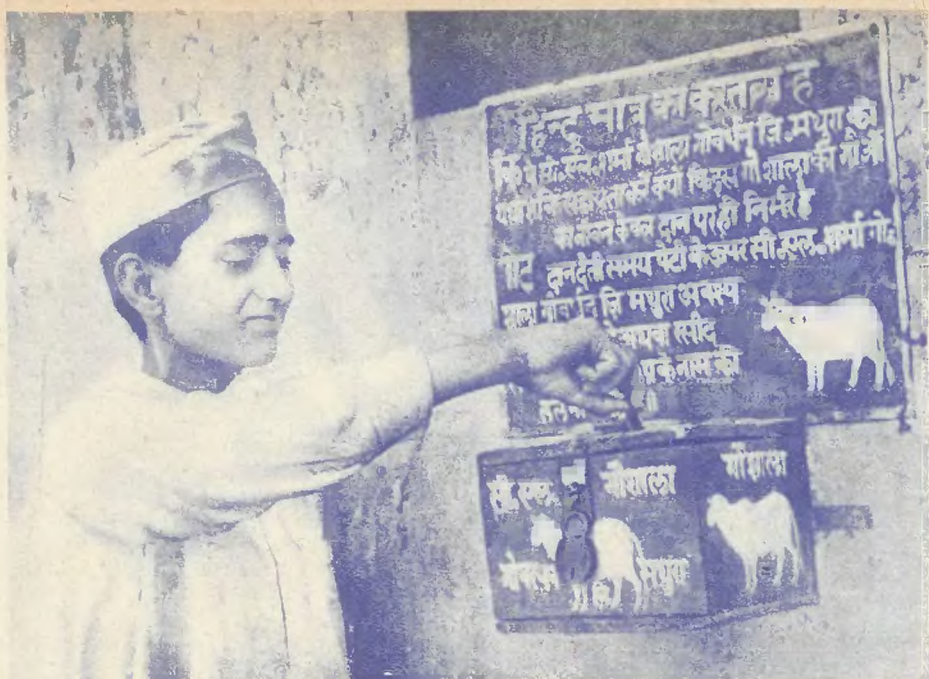 हिन्दू मात्र का कर्तव्य है
कि वे सी. एल. शर्मा गौशाला गोवर्धन जि. मथुरा की
सहायता करें क्यों कि इस गौशाला की गौओं
का भोजन केवल दान पर ही निर्भर है
नोट दान देती समय पेटी के ऊपर सी. एल. शर्मा गौ.
शाला गोवर्धन जि मथुरा अवश्य
अथवा रसीद
के नाम की
सी. एल. गौशाला
गोवर्धन मथुरा
गौशाला